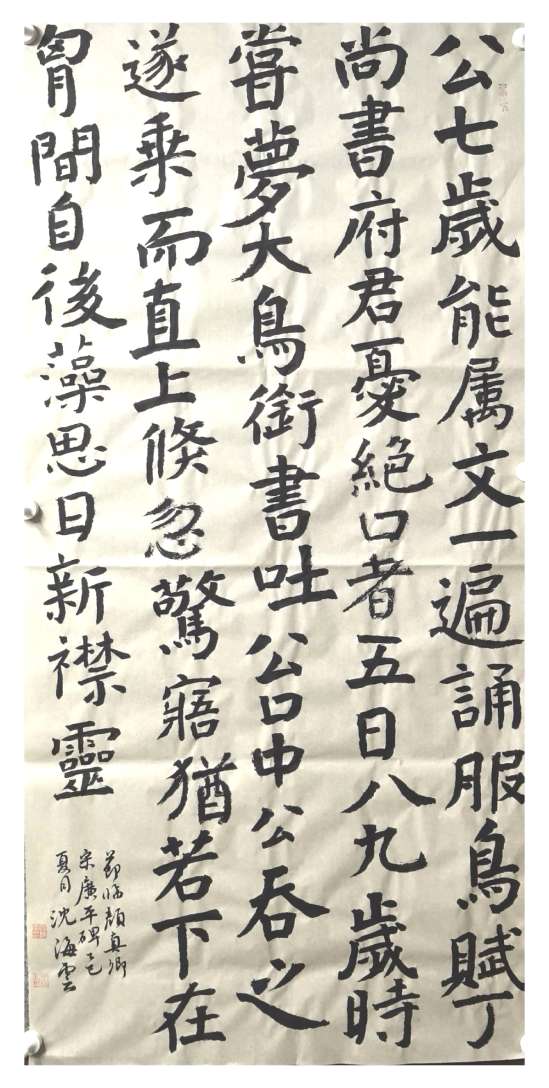 公七歲能属文一遍誦服鳥賦丁
尚書府君憂絕口者五日八九歲時
嘗夢大鳥銜書吐公口中公吞之
遂乗而直上倏忽驚寤猶若下在
胷間自後藻思日新襟靈
節临顔真卿
宋廣平碑乙巳
夏月沈海雲